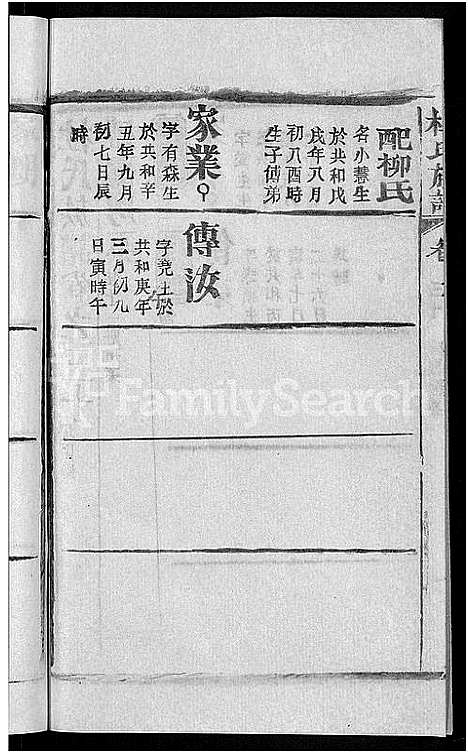 配柳氏
名小慧生
於共和戊
戌年八月
初八酉時
生子傳弟
家業
字有森生
於共和辛
丑年九月
初七日辰
時
傳汝
字堯生於
共和庚年
三月初九
日寅時午
氏族譜
卷三
FamilySearch